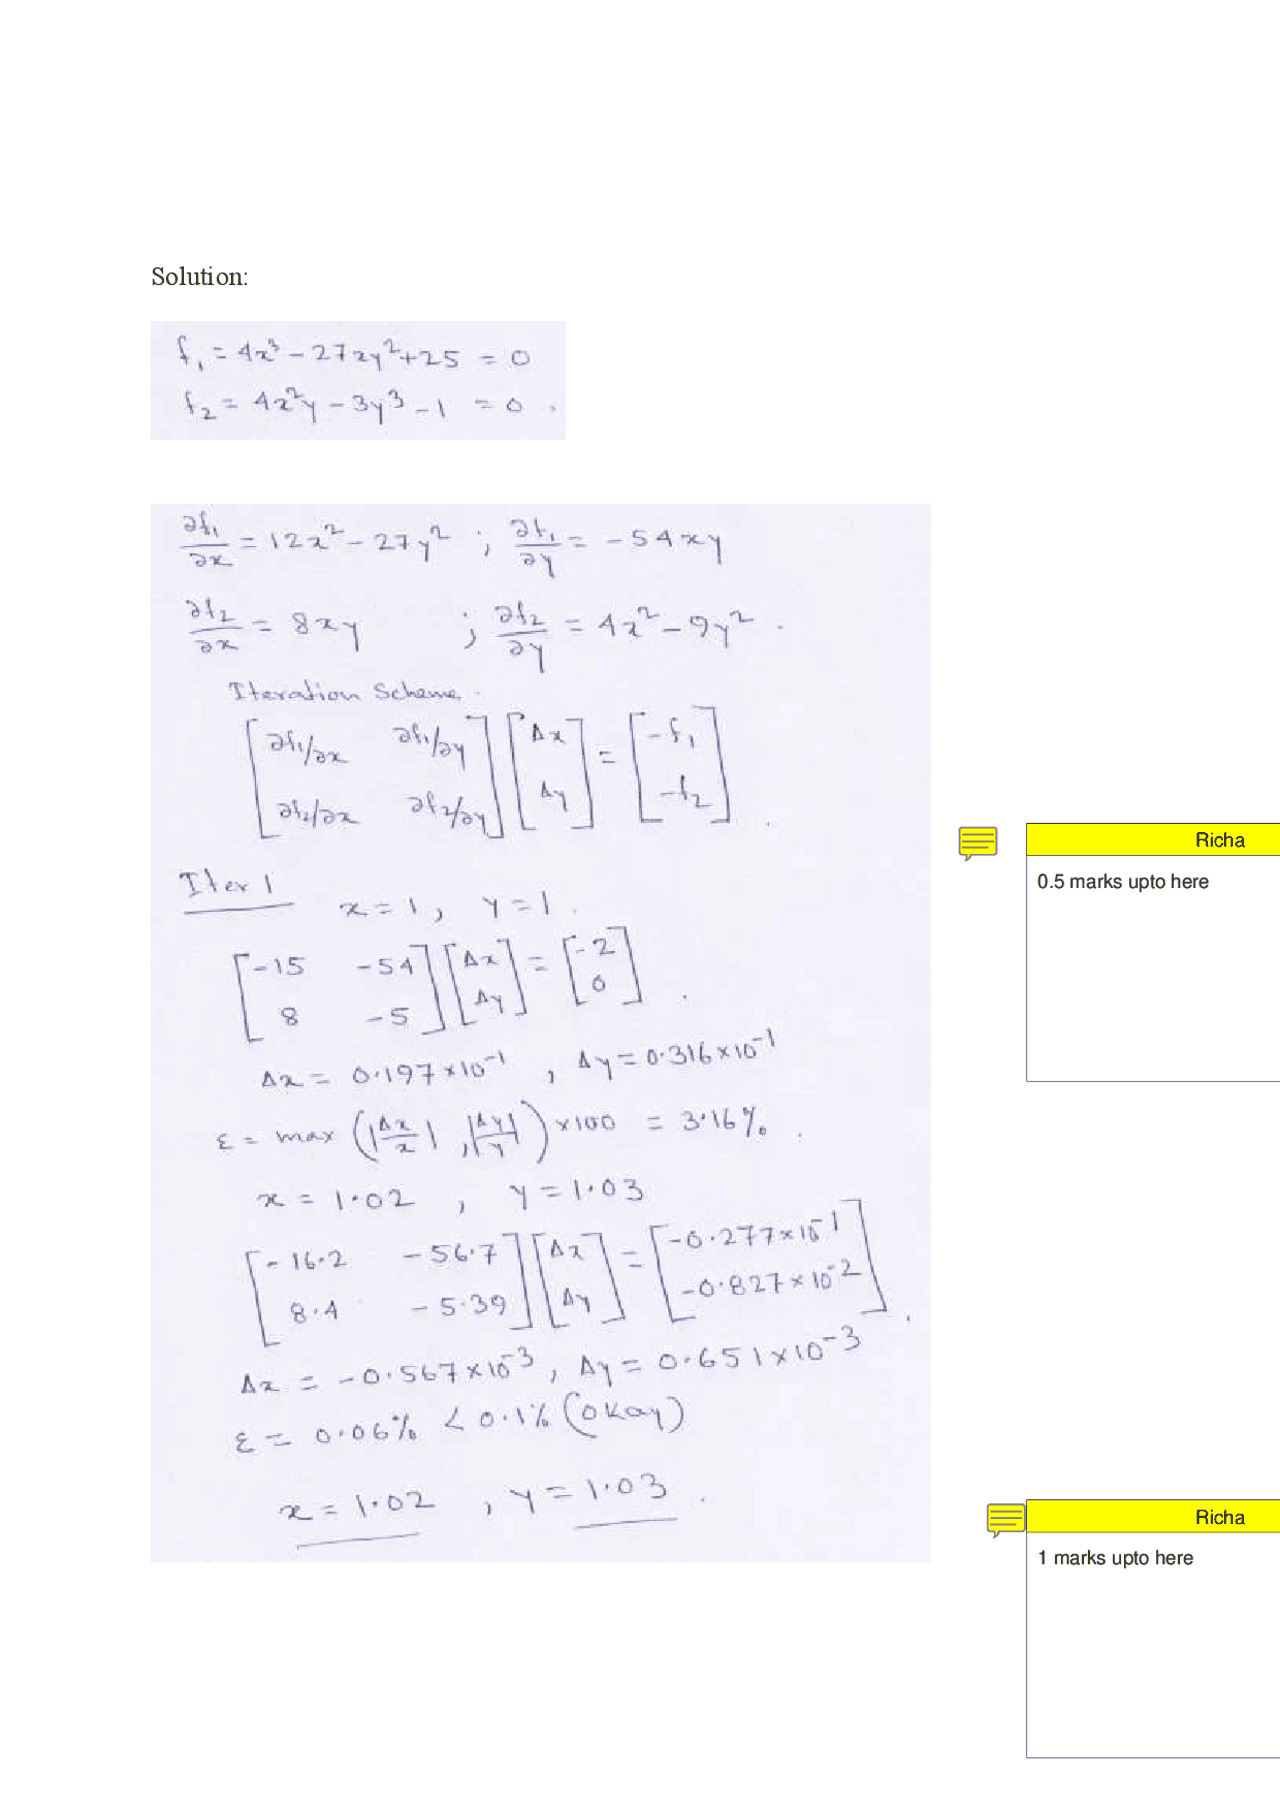 Solution:
f₁ = 4x³ − 27xy² + 25 = 0
f₂ = 4x²y − 3y³ − 1 = 0 .
∂f₁/∂x = 12x² − 27y² ; ∂f₁/∂y = −54xy
∂f₂/∂x = 8xy ; ∂f₂/∂y = 4x² − 9y² .
Iteration Scheme .
[ ∂f₁/∂x ∂f₁/∂y ] [ Δx ] = [ −f₁ ]
[ ∂f₂/∂x ∂f₂/∂y ] [ Δy ] [ −f₂ ] .
Richa
0.5 marks upto here
Iter 1
x = 1 , y = 1 .
[ −15 −54 ] [ Δx ] = [ −2 ]
[ 8 −5 ] [ Δy ] [ 0 ] .
Δx = 0.197 × 10⁻¹ , Δy = 0.316 × 10⁻¹
ε = max (|Δx/x| , |Δy/y|) × 100 = 3.16% .
x = 1.02 , y = 1.03
[ −16.2 −56.7 ] [ Δx ] = [ −0.277 × 10⁻¹ ]
[ 8.4 −5.39 ] [ Δy ] [ −0.827 × 10⁻² ] .
Δx = −0.567 × 10⁻³ , Δy = 0.651 × 10⁻³
ε = 0.06% < 0.1% (Okay)
x = 1.02 , y = 1.03 .
Richa
1 marks upto here